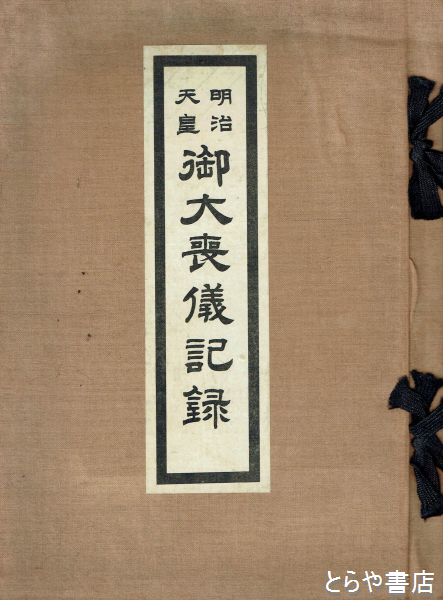 明治
天皇
御大喪儀記録
とらや書店